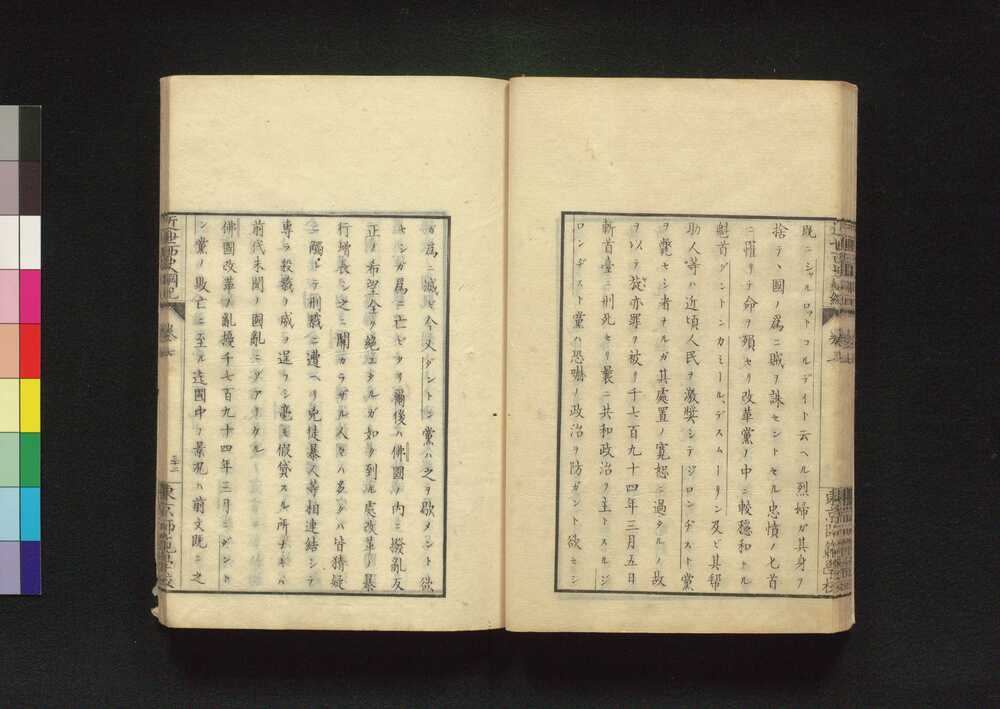 既ニシャルロットコルデイト云ヘル烈婦ガ其身ヲ
捨テ、國ノ爲ニ賊ヲ誅セントセル忠憤ノ七首
ニ罹リテ命ヲ殞セリ改革黨ノ中ニ較穏和トル
魁首ダントンカミールデスムーリン及ビ其幇
助人等ハ近頃人民ヲ激奬シテジロンヂスト黨
ヲ斃セシ者ナルガ其處置ノ寛恕ニ過タルノ故
ヲ以テ茲亦罪ヲ被リ千七百九十四年三月五日
斬首臺ニ刑死セリ曩ニ共和政治ヲ主トスルジ
ロンヂスト黨ハ恐嚇ノ政治ヲ防ガント欲セシ
ガ爲ニ滅ビ今又ダントン黨ハ之ヲ歇メント欲
セシガ爲ニ亡ビタリ爾後ハ佛國ノ内ニ撥亂反
正ノ希望全ク絶エタルガ如ク到ル處改革ノ暴
行増長シ之ニ關カラザル人々ハ多クハ皆猜疑
ニ觸レテ刑戮ニ遭ヘリ兇徒暴人等相連結シテ
專ラ殺戮ノ威ヲ逞ウシ毫モ假貸スル所ナキハ
前代未聞ノ國亂ニゾアリケル
佛國改革ノ亂擾千七百九十四年三月ニダント
ン黨ノ敗亡ニ至ル迄國中ノ景况ハ前文既ニ之
近世西史綱紀
卷七
三十二
東京師範學校